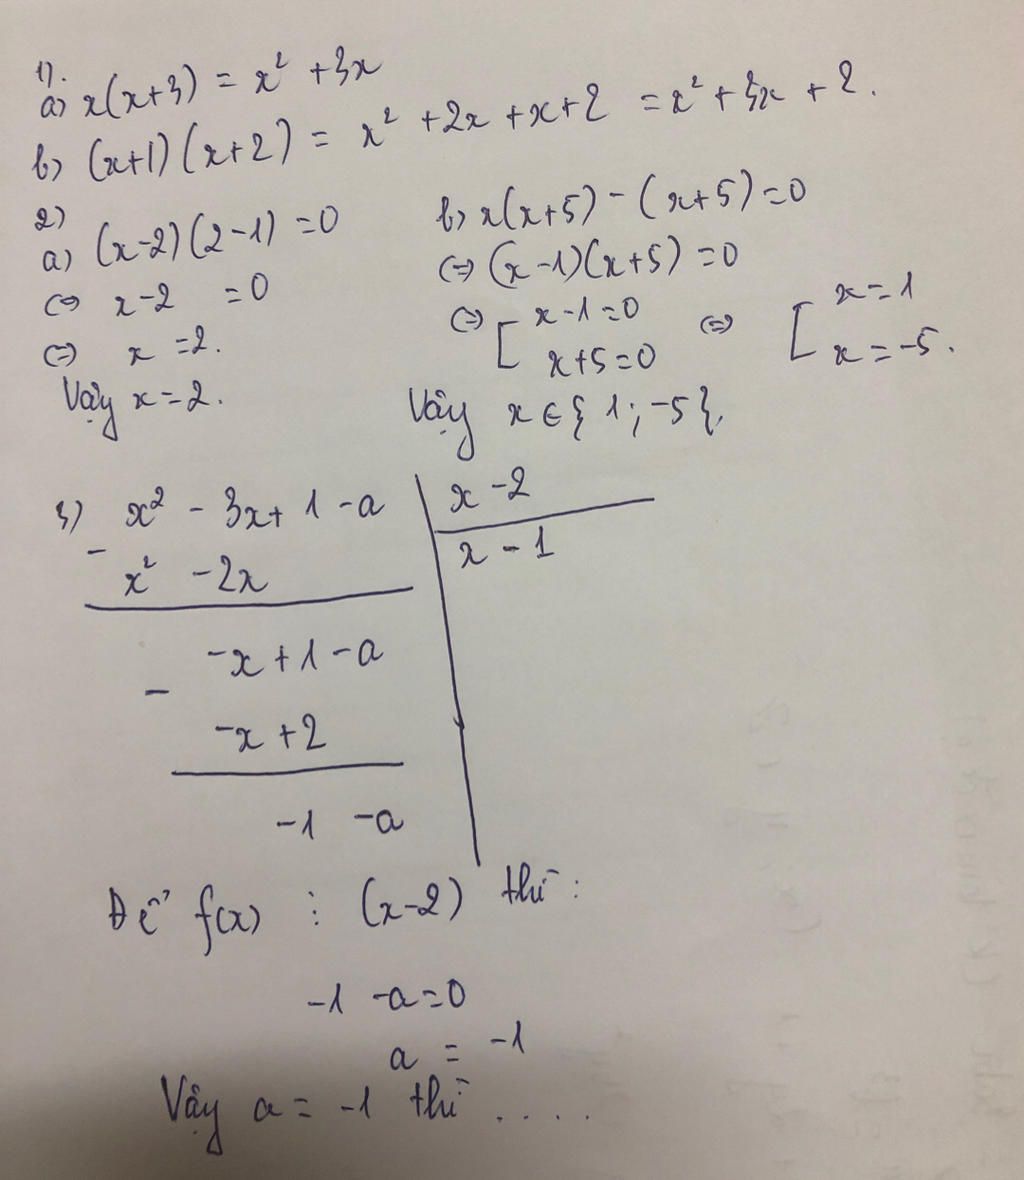 1).
a) x(x+3) = x² + 3x
b) (x+1)(x+2) = x² + 2x + x + 2 = x² + 3x + 2.
2)
a) (x-2)(2-1) = 0
<=> x-2 = 0
<=> x = 2.
Vậy x = 2.
b) x(x+5) - (x+5) = 0
<=> (x-1)(x+5) = 0
<=> [ x-1 = 0 <=> [ x = 1
x+5 = 0 x = -5.
Vậy x ∈ { 1; -5 }.
3) x² - 3x + 1 - a | x - 2
- x² - 2x | x - 1
-x + 1 - a
- -x + 2
-1 -a
Để f(x) ⋮ (x-2) thì:
-1 -a = 0
a = -1
Vậy a = -1 thì ....